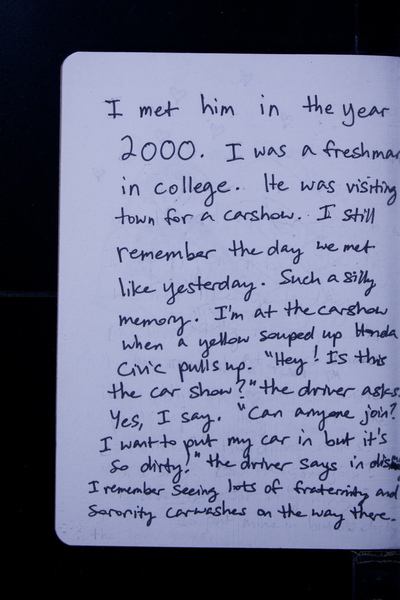 I met him in the year
2000. I was a freshman
in college. He was visiting
town for a carshow. I still
remember the day we met
like yesterday. Such a silly
memory. I'm at the carshow
when a yellow souped up Honda
Civic pulls up. "Hey! Is this
the car show?" the driver asks.
Yes, I say. "Can anyone join?
I want to put my car in but it's
so dirty." the driver says in
I remember seeing lots of fraternity and
sorority carwashes on the way there.